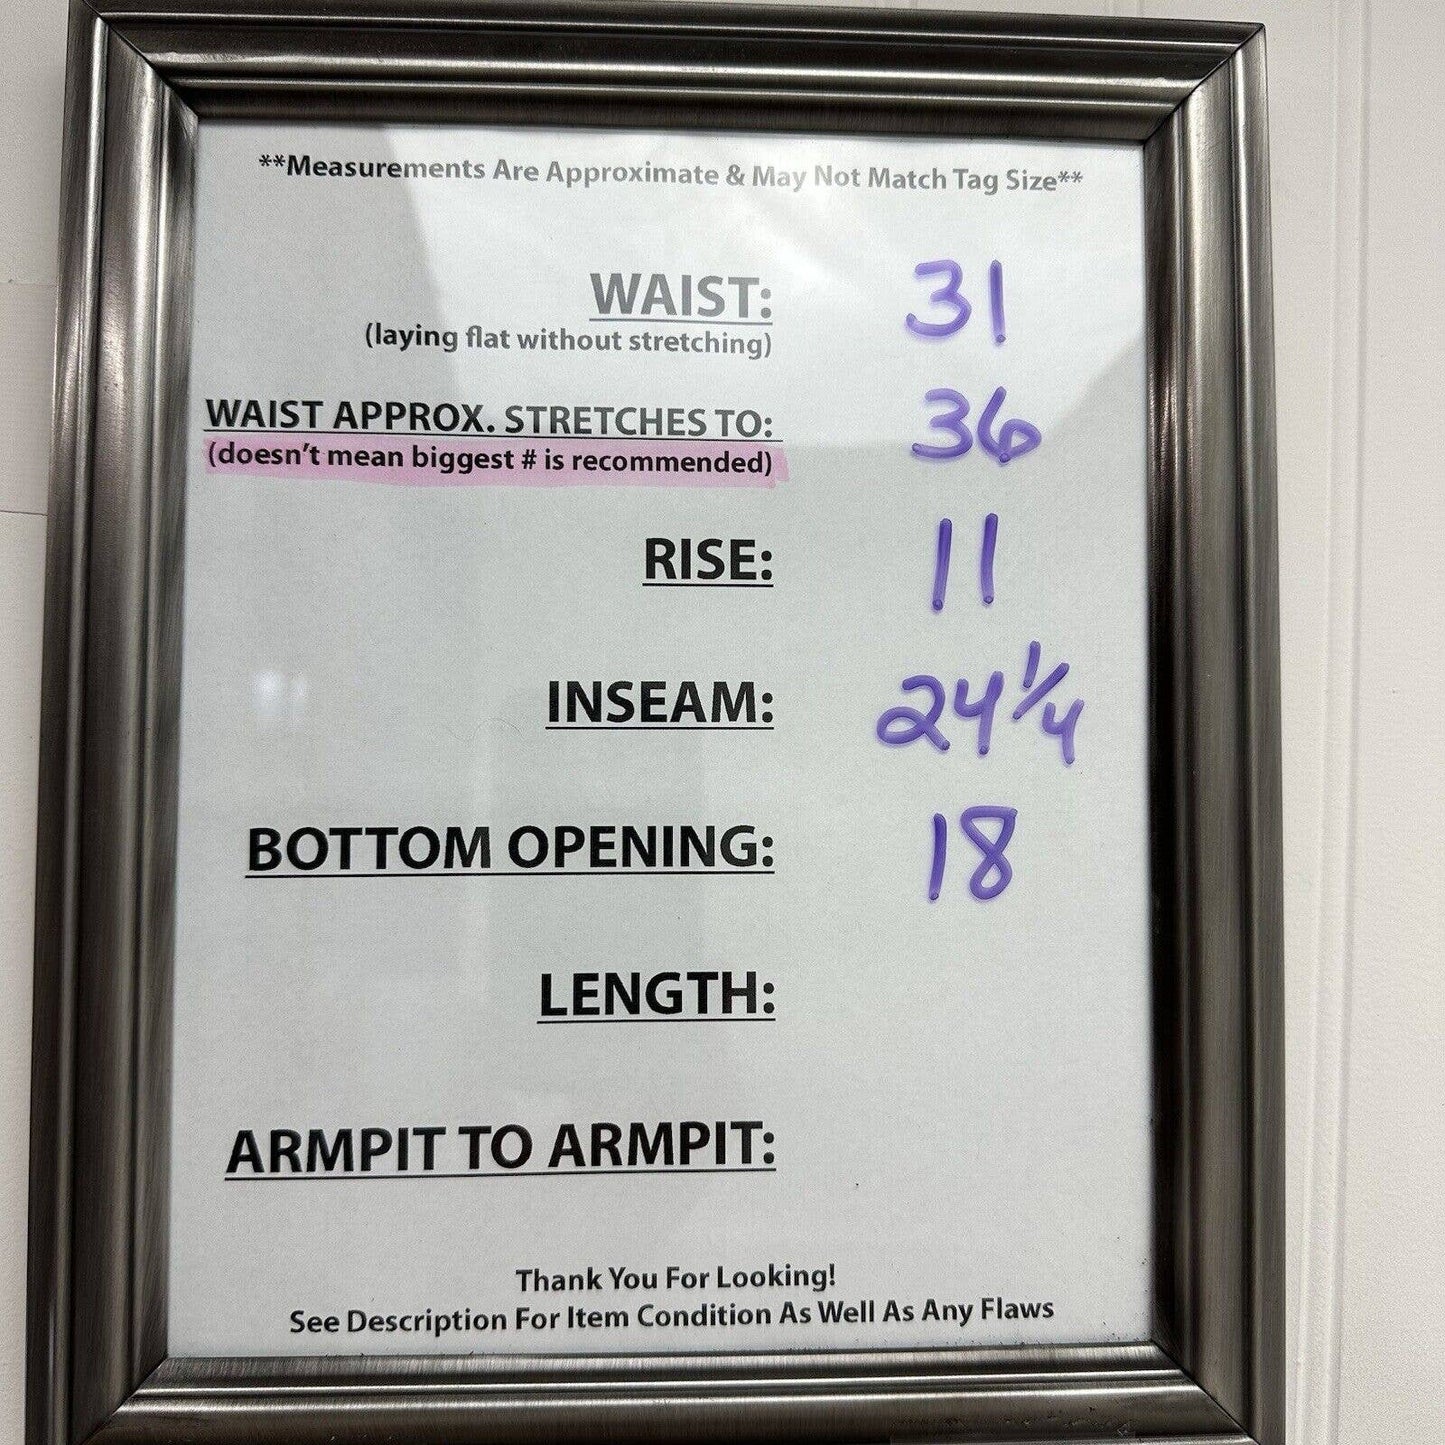 **Measurements Are Approximate & May Not Match Tag Size**
WAIST: 31
(laying flat without stretching)
WAIST APPROX. STRETCHES TO: 36
(doesn't mean biggest # is recommended)
RISE: 11
INSEAM: 24 1/4
BOTTOM OPENING: 18
LENGTH:
ARMPIT TO ARMPIT:
Thank You For Looking!
See Description For Item Condition As Well As Any Flaws